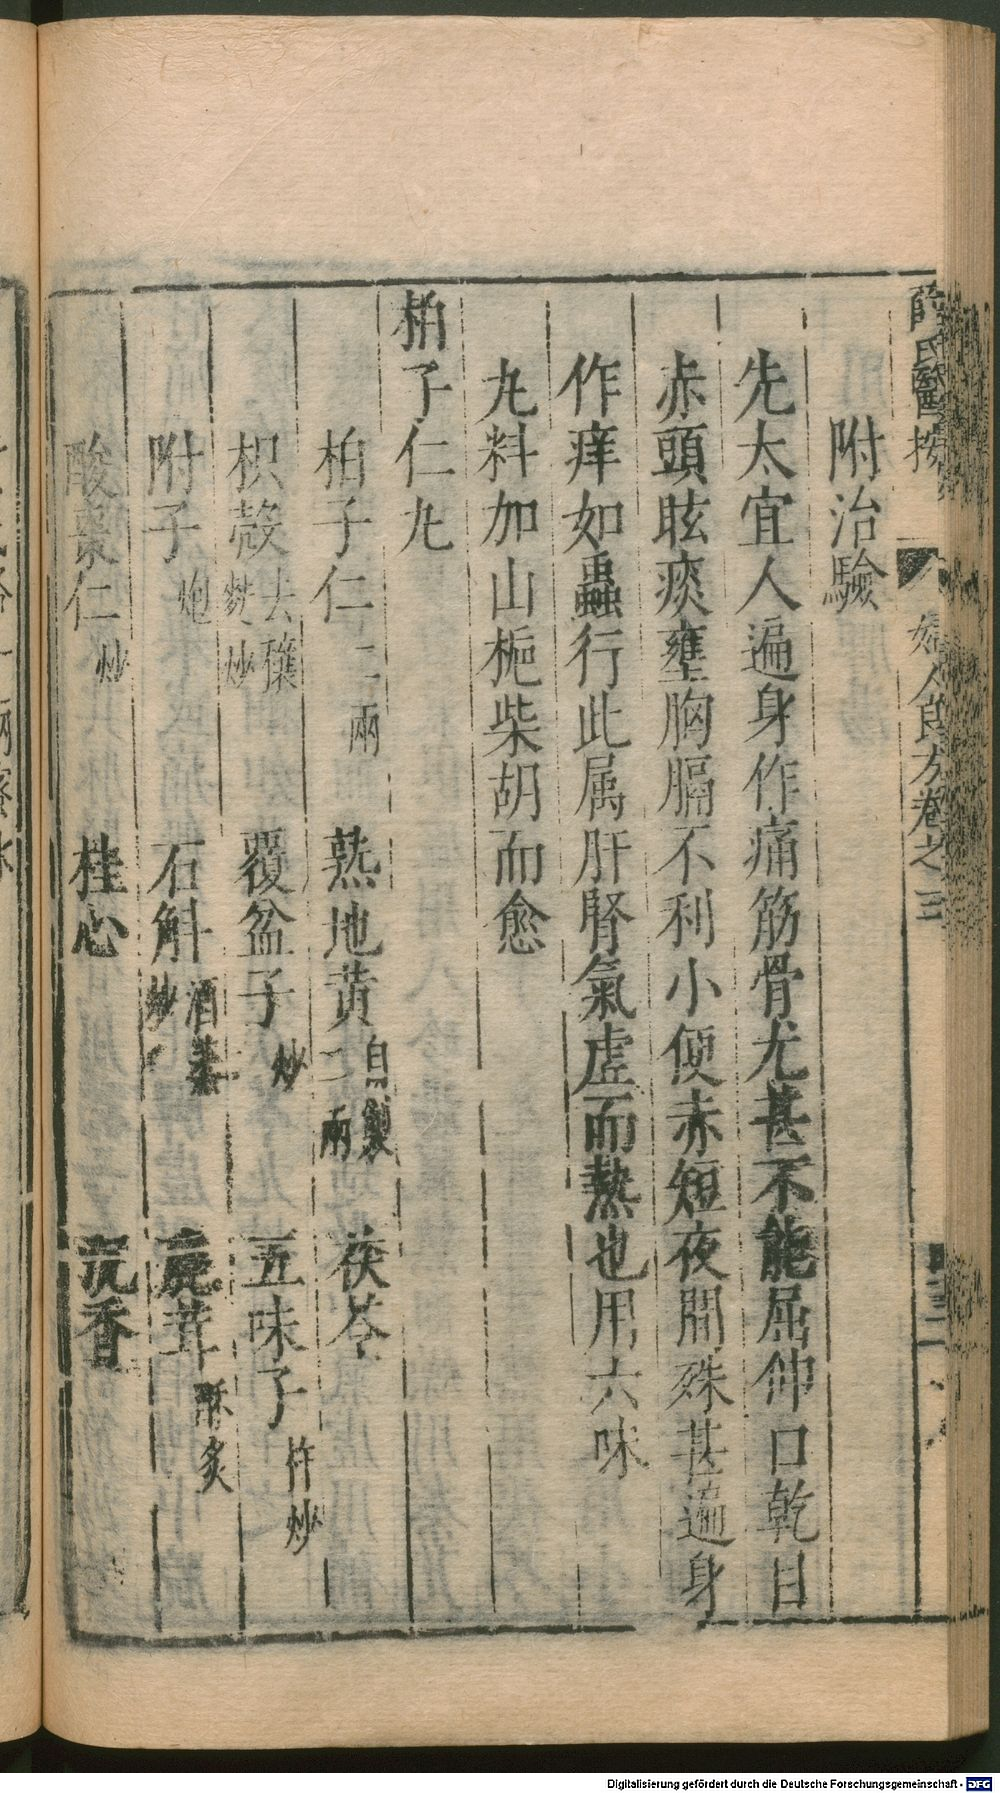 薛氏醫按　婦人良方卷之三
附治驗
先太宜人遍身作痛筋骨尤甚不能屈伸口乾目
赤頭眩痰壅胸膈不利小便赤短夜間殊甚遍身
作痒如蟲行此属肝腎氣虛而熱也用六味
丸料加山梔柴胡而愈
柏子仁丸
柏子仁二兩　熟地黄自製二兩　茯苓
枳殼去穰麸炒　覆盆子炒　五味子杵炒
附子炮　石斛酒蒸炒　鹿茸酥炙
酸棗仁炒　桂心　沉香
Digitalisierung gefördert durch die Deutsche Forschungsgemeinschaft - DFG